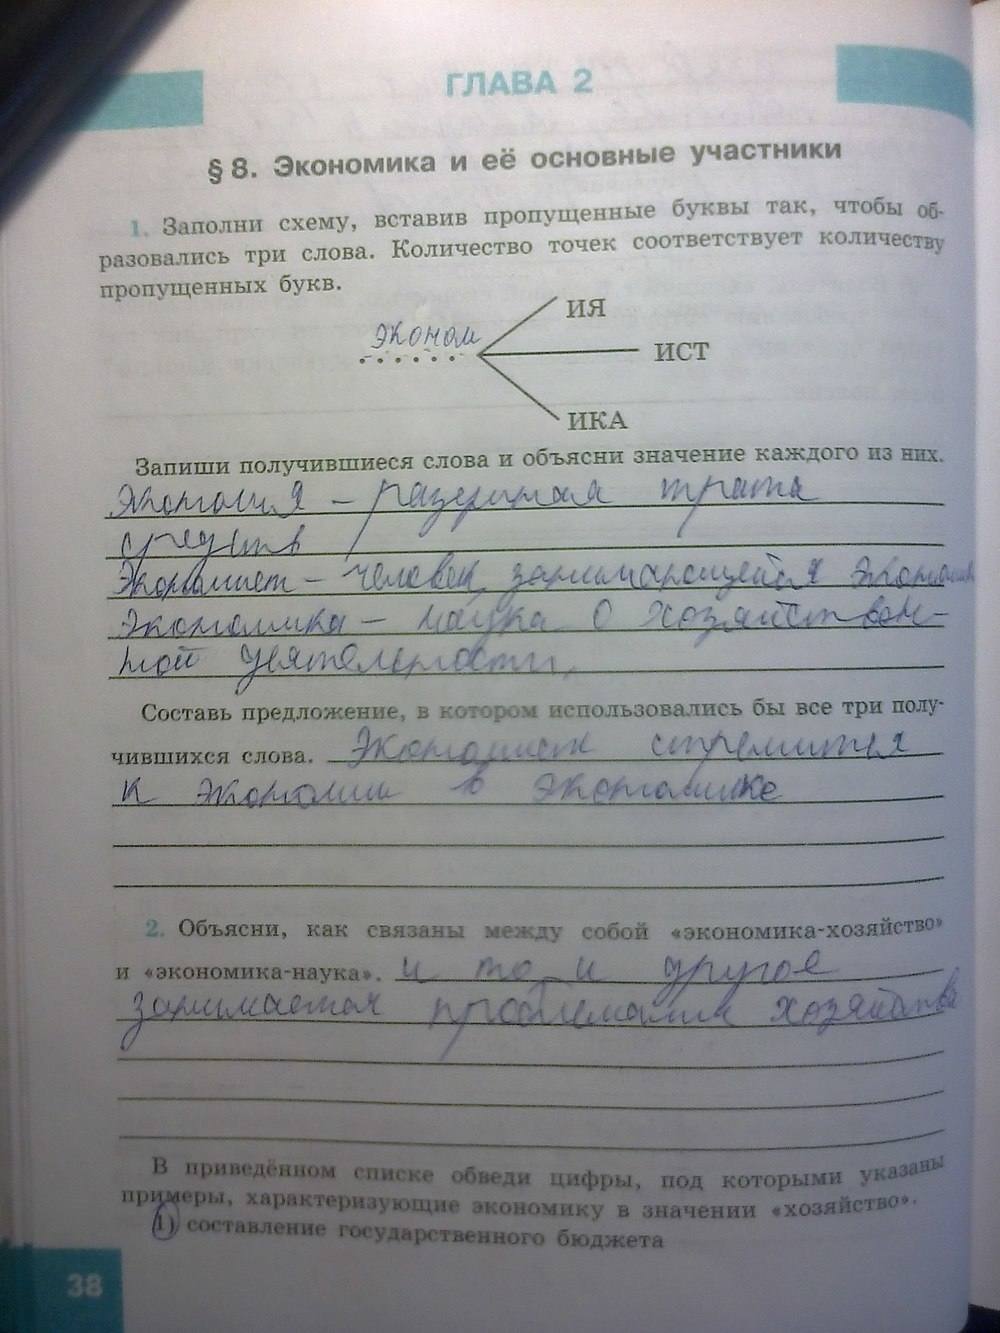 ГЛАВА 2
§ 8. Экономика и её основные участники
1. Заполни схему, вставив пропущенные буквы так, чтобы об-
разовались три слова. Количество точек соответствует количеству
пропущенных букв.
ИЯ
эконом
......
ИСТ
ИКА
Запиши получившиеся слова и объясни значение каждого из них.
Экономия – разумная трата
средств
Экономист – человек, занимающийся эконом
Экономика – наука о хозяйствен-
ной деятельности.
Составь предложение, в котором использовались бы все три полу-
чившихся слова. Экономист стремится
к экономии в экономике
2. Объясни, как связаны между собой «экономика-хозяйство»
и «экономика-наука». и то и другое
занимается проблемами хозяйства
В приведённом списке обведи цифры, под которыми указаны
примеры, характеризующие экономику в значении «хозяйство».
1) составление государственного бюджета
38